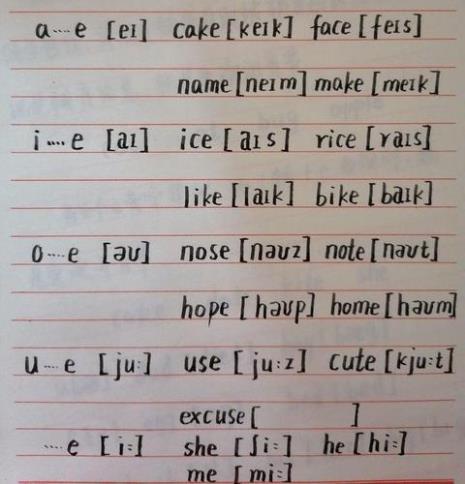 a....e [eɪ] cake [keɪk] face [feɪs]
name [neɪm] make [meɪk]
i....e [aɪ] ice [aɪs] rice [raɪs]
like [laɪk] bike [baɪk]
o....e [əʊ] nose [nəʊz] note [nəʊt]
hope [həʊp] home [həʊm]
u....e [ju:] use [ju:z] cute [kju:t]
excuse [ ]
....e [i:] she [ʃi:] he [hi:]
me [mi:]